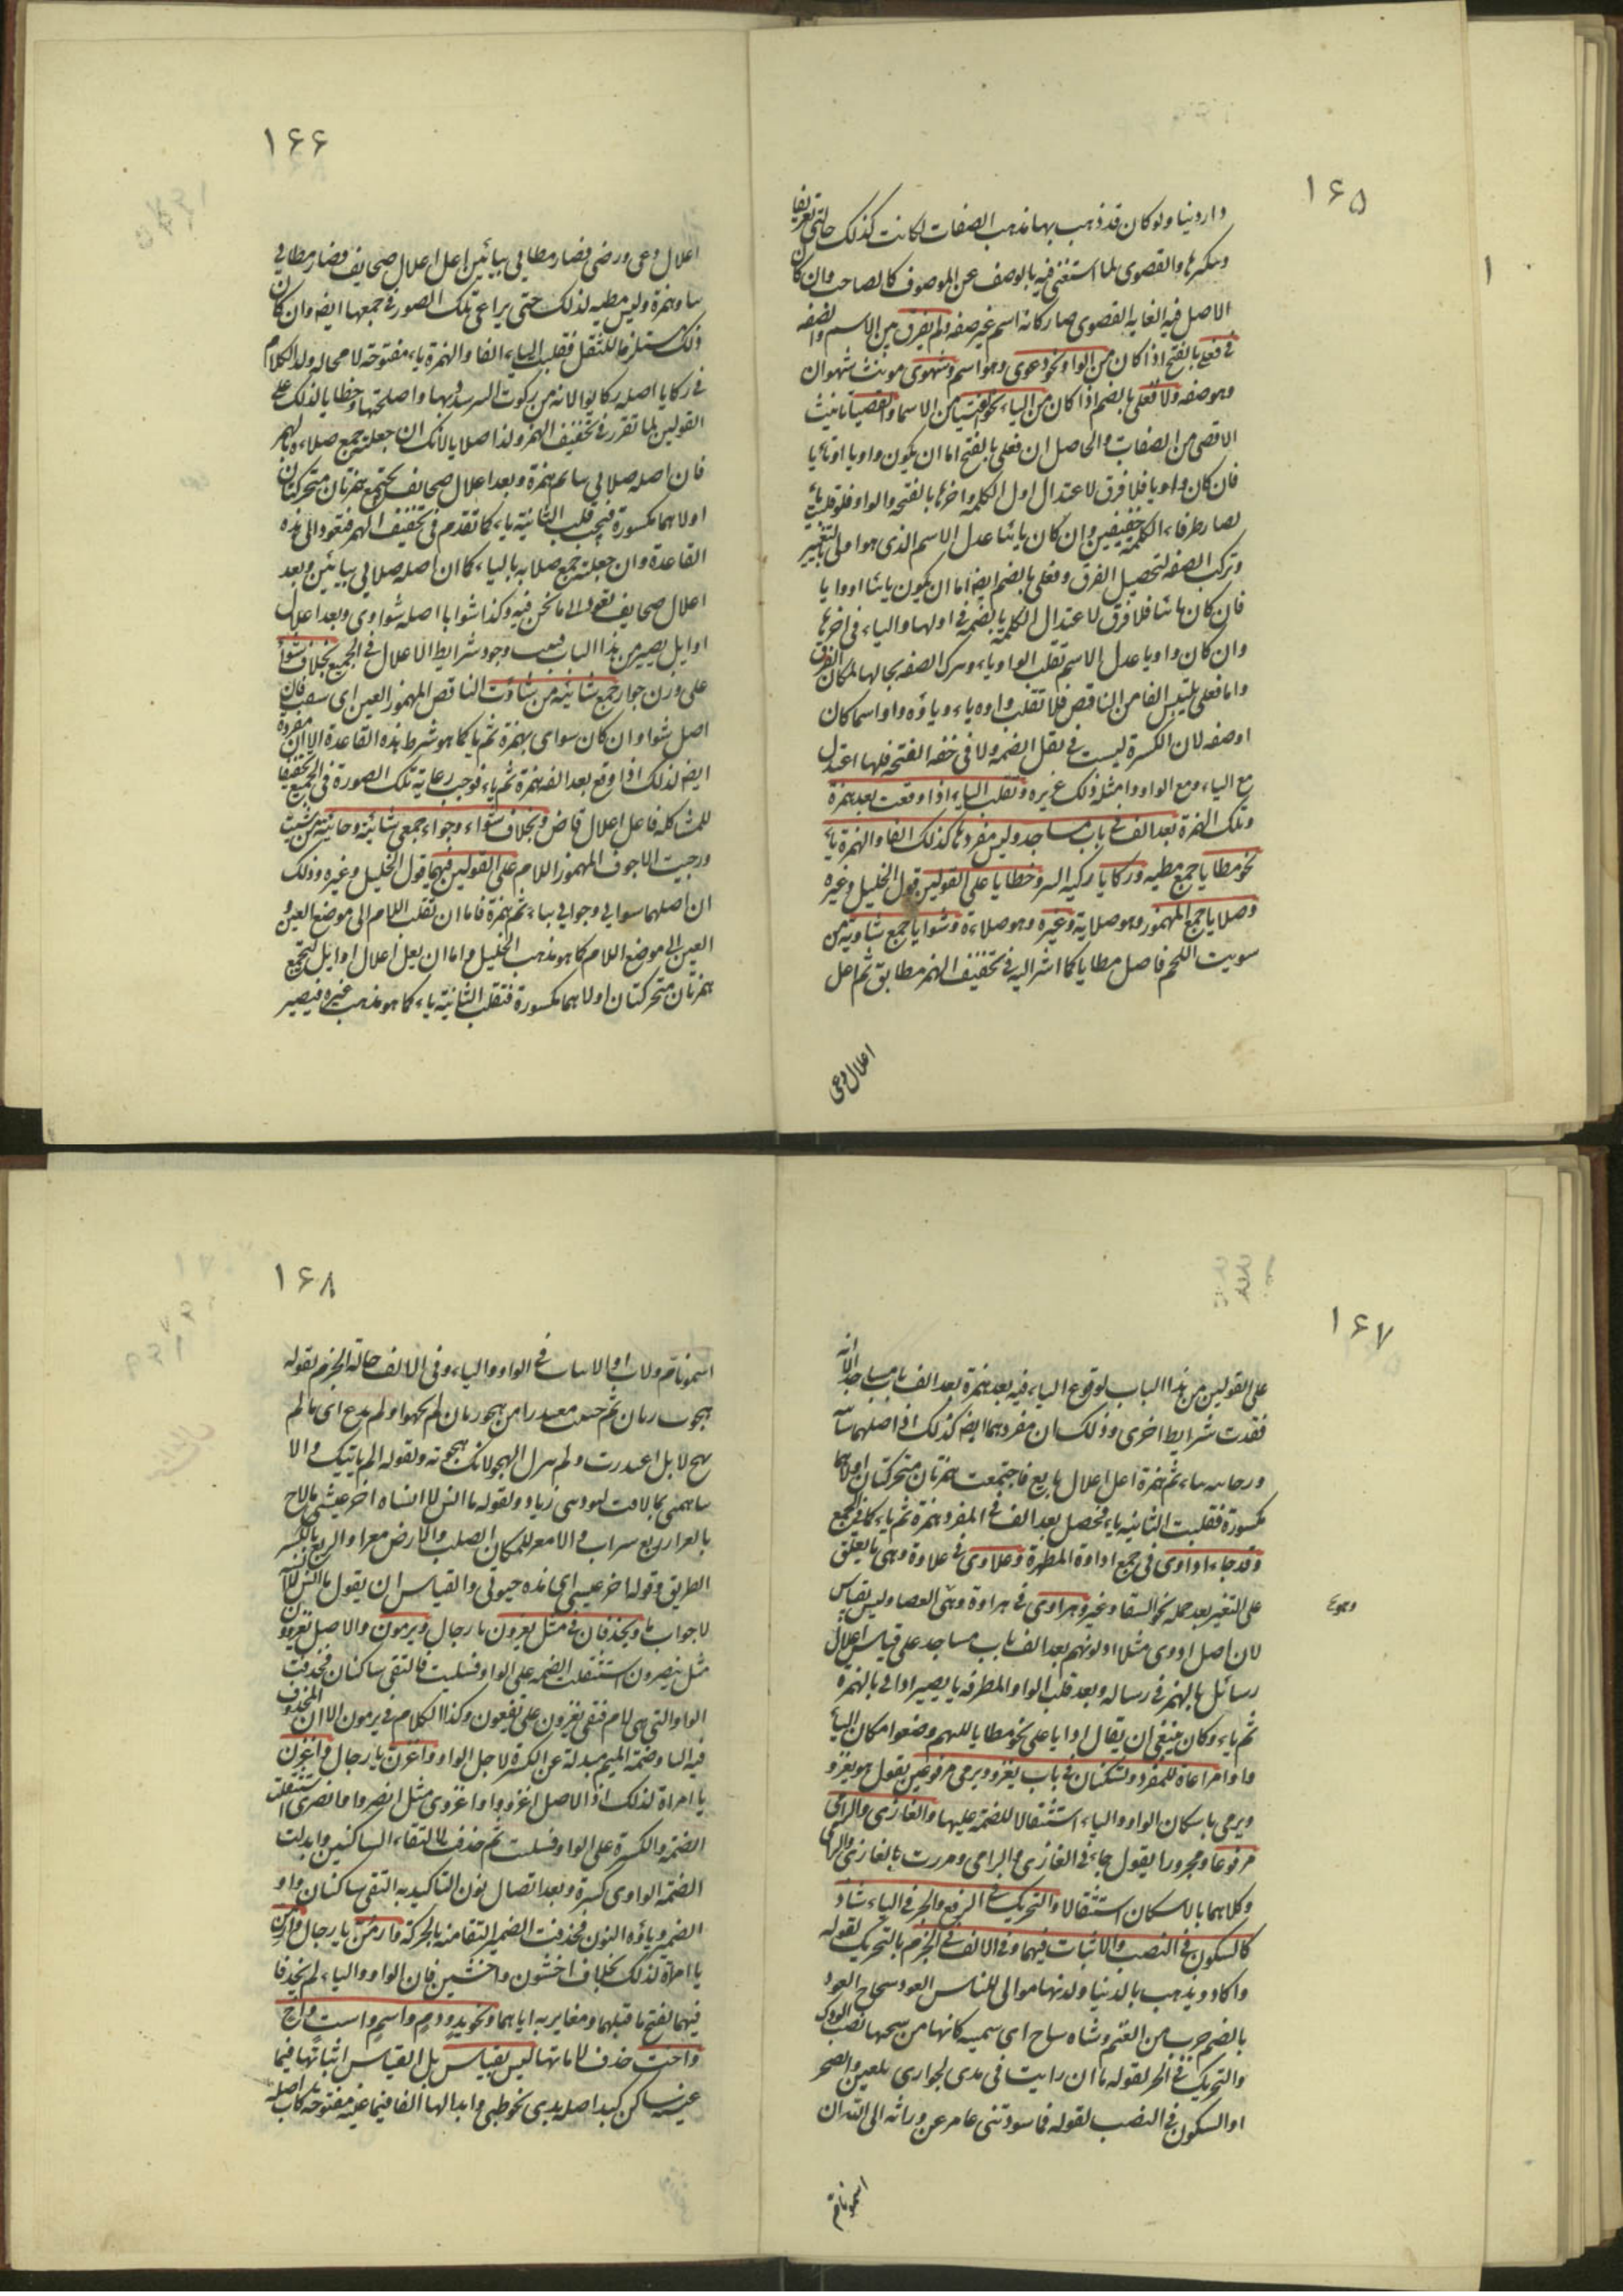 ۱۶۵
دار دنيا ولو كان قد ذهب بها مذهب الصفات لكانت كذلك حالتي تعريفا
وتنكيرها والقصوى لما استغنى فيه بالوصف عن الموصوف كالصاحب وان كان
الاصل فيه الغاية القصوى صار كانه اسم غير صفه ولم يفرق بين الاسم والصفه
فى فعلى بالفتح اذا كان من الواو نحو دعوى وهو اسم وشهوى مونث شهوان
وهو صفه ولا فعلى بالضم اذا كان من الياء نحو الفتيا من الاسما والقضيا تانيث
الاقضى من الصفات والحاصل ان فعلى بالفتح اما ان يكون واويا او يائيا
فان كان واويا فلا فرق لاعتدال اول الكلمه واخرها بالفتحه والواو فلو قلبت ياء
لصار طرفا الكلمة خفيفين وان كان يائيا عدل الاسم الذى هو اولى بالتغيير
وترك الصفه لتحصيل الفرق وفعلى بالضم ايضا اما ان يكون يائيا او واويا
فان كان يائيا فلا فرق لاعتدال الكلمة بالضمه فى اولها والياء فى اخرها
وان كان واويا عدل الاسم تقلب الواو ياء وترك الصفه بحالها لمكان الفرق
واما فعلى بكسر الفا من الناقص فلا تقلب واوه ياء وياؤه واوا اسما كان
او صفه لان الكسرة ليست فى ثقل الضمه ولا فى خفه الفتحه فلها اعتدال
مع الياء ومع الواو وامثله ذلك غزيره وتقلب الياء اذا وقعت بعد همزة
وتلك الهمزة بعد الف فى باب مساجد وليس مفردها كذلك الفا والهمزة ياء
نحو مطايا جمع مطيه وركايا ركيه البير وخطايا على القولين قول الخليل وغيره
وصلايا جمع المهموز وهو صلاية وغيره وهو صلاءة وشوايا جمع شاوية من
شويت اللحم فاصل مطايا كما اشر اليه فى تخفيف الهمز مطايو ثم اعل
اعلال دعى
۱۶۶
اعلال دعى ورضى فصار مطايى بيائين اعل اعلال صحايف فصار مطائى
بيا وهمزة وليس مطيه لذلك حتى يراعى تلك الصور فى جمعها ايضا وان كان
ذلك مستلزما للثقل فقلبت الياء الفا والهمزة ياء مفتوحة لا محاله ولذا الكلام
فى ركايا اصله ركايو لانه من ركوت البير شددتها واصلحتها وخطايا لذلك على
القولين لما تقرر فى تخفيف الهمز ولذا صلايا لانك ان جعلته جمع صلاءة بالهمز
فان اصله صلايى بيا ثم همزة وبعد اعلال صحايف تجتمع همزتان متحركتان
اولاهما مكسورة فيجب قلب الثانية ياء كما تقدم فى تخفيف الهمز فتعود الى هذه
القاعدة وان جعلته جمع صلايه بالياء كان اصله صلايى بيائين وبعد
اعلال صحايف تعود الى ما نحن فيه وكذا شوايا اصله شواوى وبعد اعلال
اوايل يصير من هذا الباب فيجب وجود شرايط الاعلال فى الجميع بخلاف شواء
على وزن جوار جمع شائية من شاوت الناقص المهموز العين اى سبقت فان
اصل شواء وان كان شواءى بهمزة ثم ياء كما هو شرط هذه القاعدة الا ان مفرده
ايضا لذلك اذا وقع بعد الفه همزة ثم ياء فوجب رعاية تلك الصورة فى الجمع تحقيقا
للمشاكله فاعل اعلال قاض وبخلاف شواء وجواء جمعى شائية وجائية من شئت
وجئت الاجوف المهموز اللام على القولين فيهما قول الخليل وغيره وذلك
ان اصلهما شوايئ وجوايئ بيا ثم همزة فاما ان تقلب اللام الى موضع العين و
العين الى موضع اللام كما هو مذهب الخليل واما ان يعل اعلال اوايل فتجتمع
همزتان متحركتان اولاهما مكسورة فتقلب الثانية ياء كما هو مذهب غيره فيصير
۱۶۷
على القولين من هذا الباب لوقوع الياء فيه بعد همزة بعد الف باب مساجد الا انه
فقدت شرايط اخرى وذلك ان مفردهما ايضا كذلك اذ اصلهما شائية
وجايية بياء ثم همزة اعل اعلال بايع فاجتمعت همزتان متحركتان اولاهما
مكسورة فقلبت الثانيه ياء فحصل بعد الف فى المفرد همزة ثم ياء كما فى الجمع
وقد جاء اداوى فى جمع اداوة المطهرة وعلاوى فى علاوة وهى ما يعلق
على البعير بعد حمله نحو السقا وغيره وهراوى فى هراوة وهى العصا وليس بقياس
لان اصل اداوى مثلا ادائو بهمز بعد الف باب مساجد على قياس اعلال
رسائل بالهمز فى رساله وبعد قلب الواو المطرفه يا يصير ادائى بالهمزة
ثم ياء وكان ينبغى ان يقال ادايا على نحو مطايا لكنهم وضعوا مكان الياء
واوا مراعاة للمفرد وتسكنان فى باب يغزو ويرمى مرفوعين يقول هو يغزو
ويرمى باسكان الواو والياء استثقالا للضمة عليها والغازى والرامى
مرفوعا ومجرورا يقول جاءنى الغازى والرامى ومررت بالغازى والرامى
وكلاهما بالاسكان استثقالا والتحريك فى الرفع والجر فى الياء شاذ
كالسكون فى النصب والاثبات فيهما وفى الالف فى الجزم بالتحريك لقوله
وكاد يذهب بالدنيا ولذتها موالى للناس العود سحاح العود
بالضم جرب من الغنم وشاه ساح اى سمينه كانها من سحها تصب الودك
والتحريك فى الجر لقوله ما ان رايت فى مدى لجوارى يلعبن فى الصحر
او السكون فى النصب لقوله فما سودتنى عامر عن وراثه الى الله ان
اسمو بام
۱۶۸
اسمو بام ولا اب والاثبات فى الواو والياء وفى الالف حالة الجزم لقوله
هجوت زبان ثم جئت معتذرا من هجو زبان لم تهجو ولم تدع اى ما لم
تهج لا بل اعتذرت ولم تترك الهجو لانك هجوته ولقوله الم ياتيك والا
نبا تنمى بما لاقت لبون بنى زياد ولقوله ما انس لا انساه اخر عيشى ما لاح
بالمعزاء ريع سراب والامعز للمكان الصلب والارض معزاء والريع بالكسر
الطريق وقوله اخر عيشى اى مدة حيوتى والقياس ان يقول ما انس لا انسه
لا جواب ما ويحذفان فى مثل يغزون يا رجال ويرمون والاصل تغزوون
مثل ينصرون استثقلت الضمه على الواو فسلبت فالتقى ساكنان فحذفت
الواو التى هى لام فبقى تغزون على تفعون وكذا الكلام فى يرمون الا ان المحذوف
فيه اليا وضمة الميم مبدلة عن الكسرة لاجل الواو واغزن يا رجال واغزن
يا امراة لذلك اذ الاصل اغزووا واغزوى مثل انصروا وانصرى استثقلت
الضمة والكسرة على الواو فسلبت ثم حذف لالتقاء الساكنين وابدلت
الضمة الواوى كسرة وبعد اتصال نون التاكيد به التقى ساكنان واو
الضمير وياؤه النون فحذفت الضمير التقا منه بالحركة وارمن يا رجال وارمن
يا امراة لذلك بخلاف اخشون واخشين فان الواو والياء لم يحذفا
فيهما لفتح ما قبلهما ومغايرته اياهما ونحو يد ودم واسم واست واخ
واخت حذف لاماتها ليس بقياس بل القياس اثباتها فيما
عينه ساكن كيد اصله يدى نحو ظبى وابدالها الفا فيما عينه مفتوحة كاب اصله